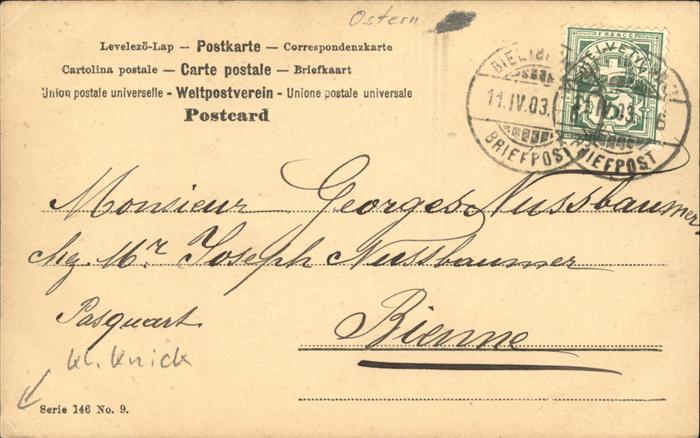 Ostern
Levelező-Lap — Postkarte — Correspondenzkarte
Cartolina postale — Carte postale — Briefkaart
Union postale universelle - Weltpostverein - Unione postale universale
Postcard
FRANCO
HELVETIA
5
BIEL (BI
11.IV.03.
BRIEFPOST
11.IV.03
BRIEFPOST
Monsieur Georges Nussbaumer
chez Mr. Joseph Nussbaumer
Pasquart Bienne
kl. Knick
Serie 146 No. 9.